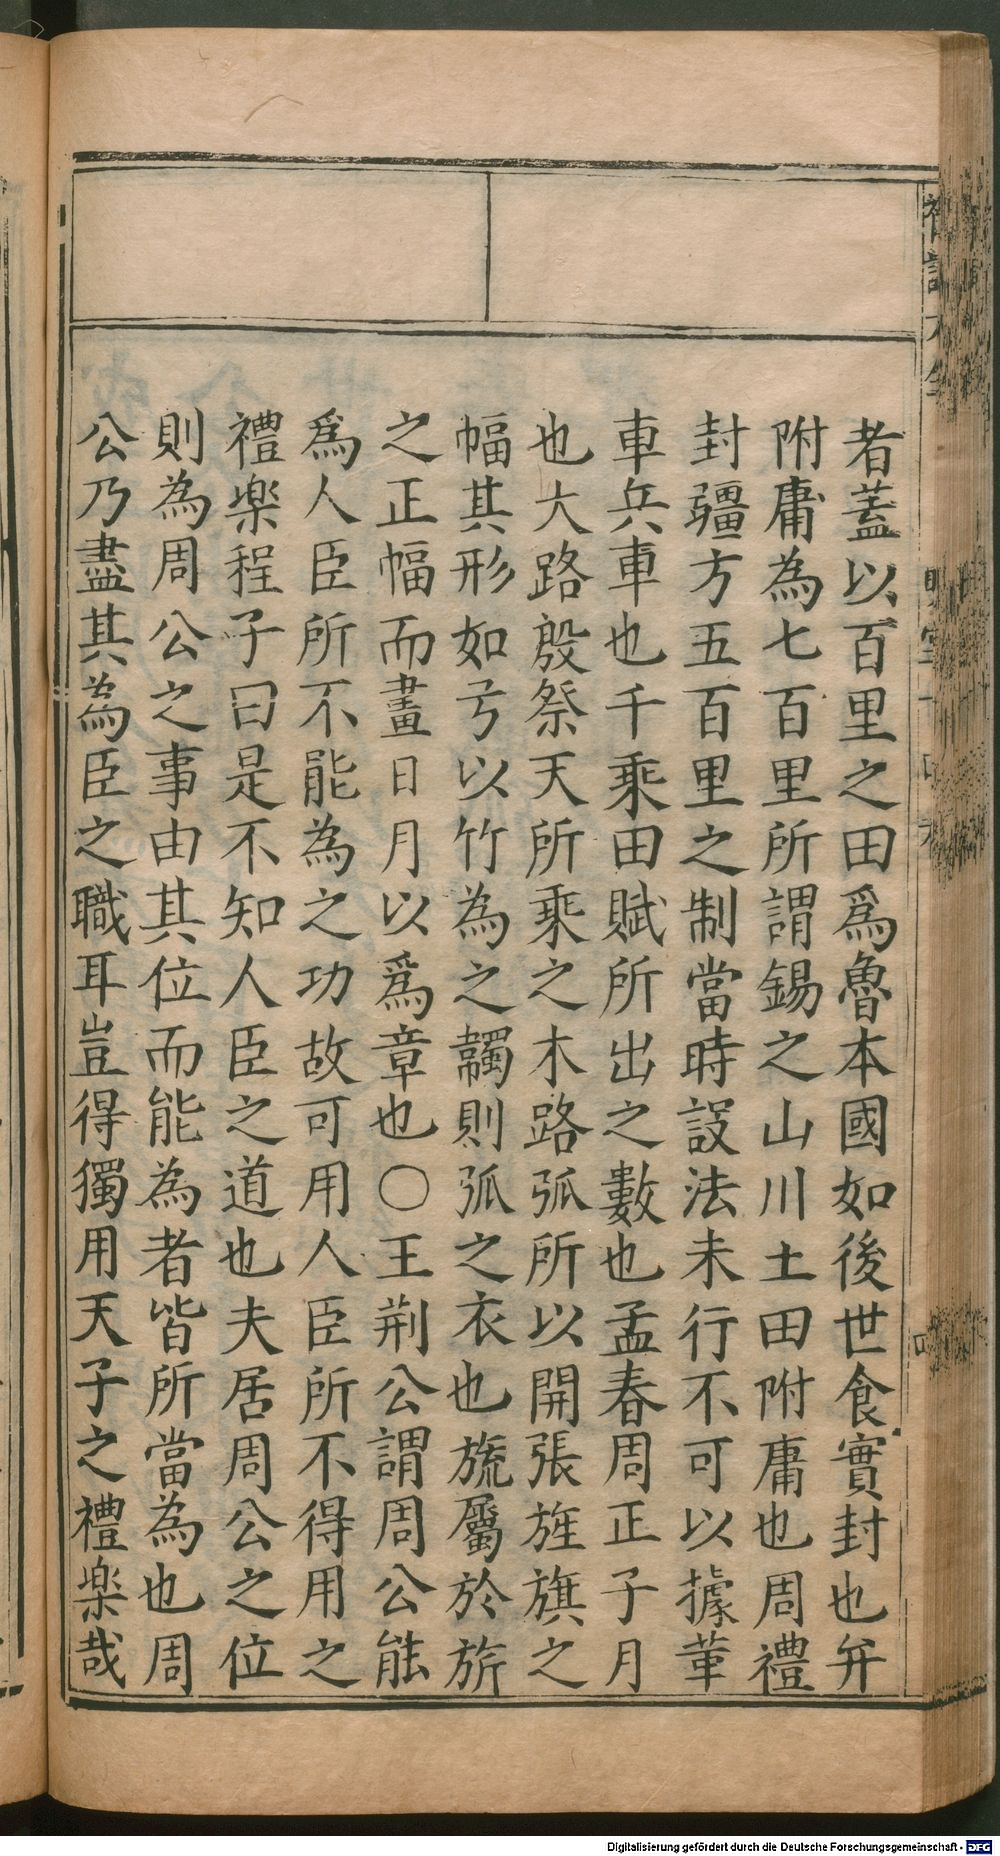 者蓋以百里之田爲魯本國如後世食實封也并
附庸為七百里所謂錫之山川土田附庸也周禮
封疆方五百里之制當時設法未行不可以據革
車兵車也千乘田賦所出之數也孟春周正子月
也大路殷祭天所乘之木路弧所以開張旌旗之
幅其形如弓以竹為之韣則弧之衣也旒屬於旂
之正幅而畫日月以爲章也○王荆公謂周公能
爲人臣所不能為之功故可用人臣所不得用之
禮楽程子曰是不知人臣之道也夫居周公之位
則為周公之事由其位而能為者皆所當為也周
公乃盡其為臣之職耳豈得獨用天子之禮楽哉
Digitalisierung gefördert durch die Deutsche Forschungsgemeinschaft - DFG